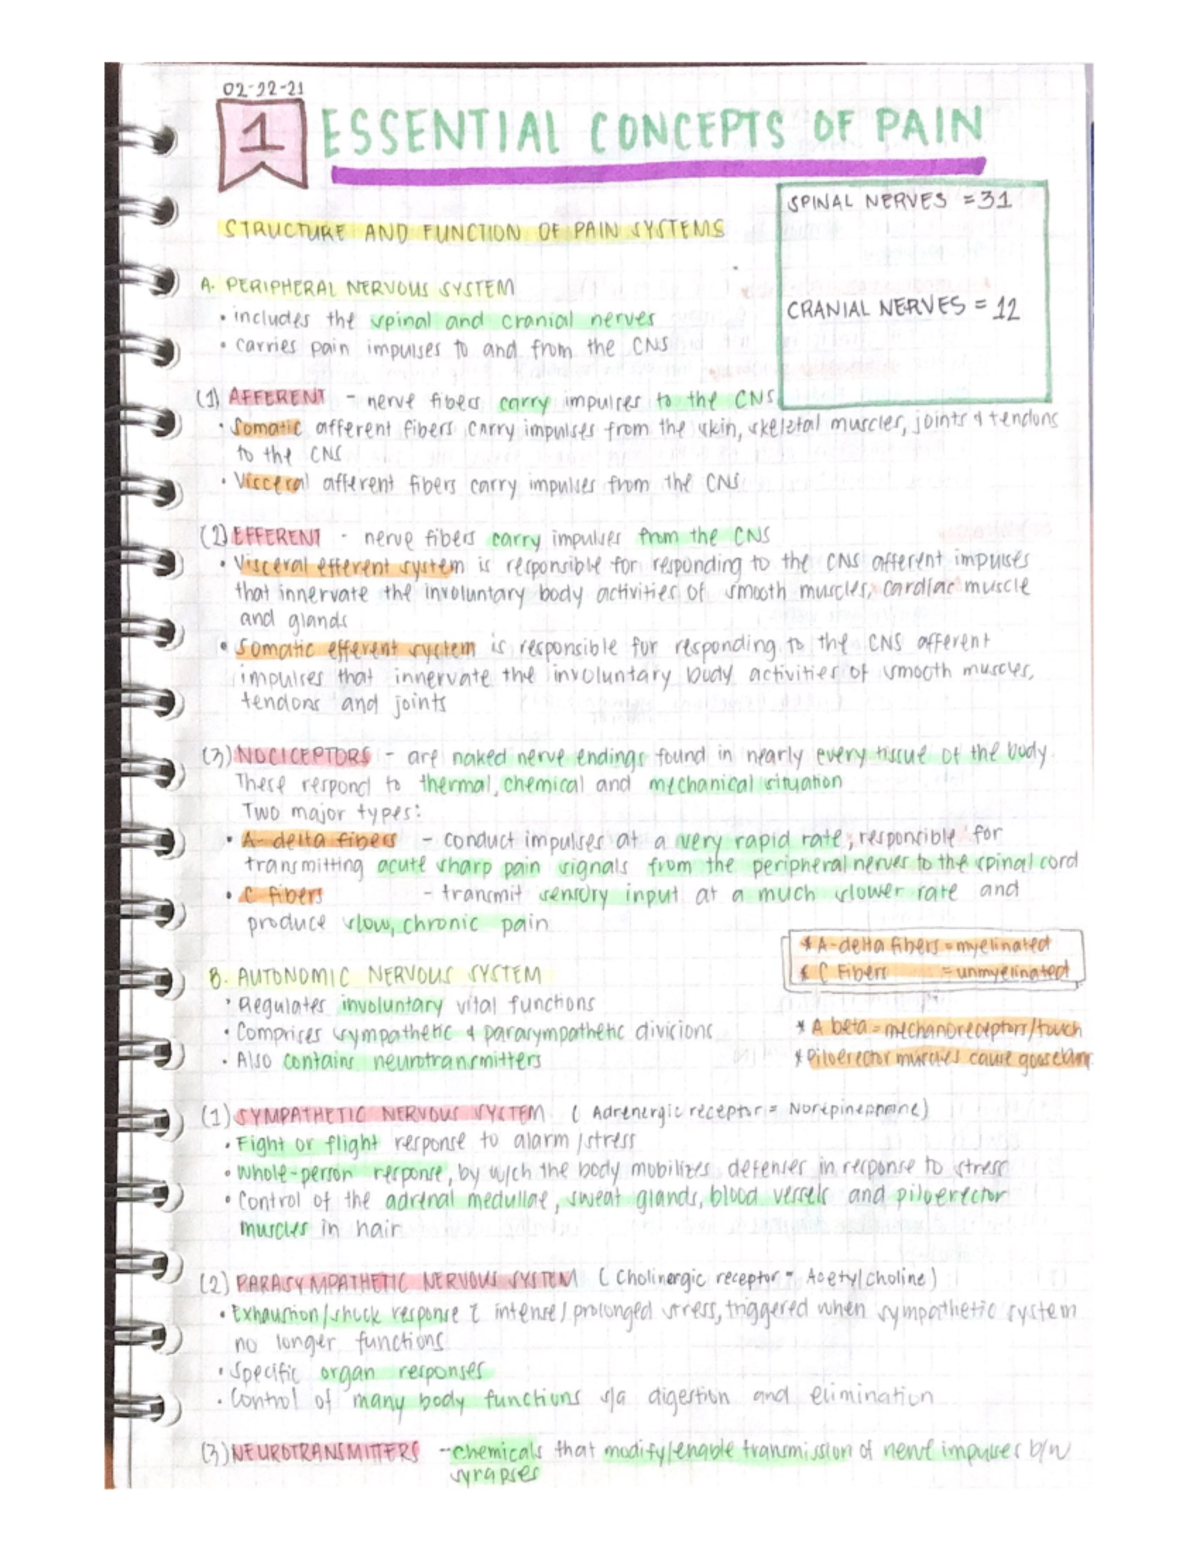 02-22-21
1 ESSENTIAL CONCEPTS OF PAIN
SPINAL NERVES = 31
STRUCTURE AND FUNCTION OF PAIN SYSTEMS
A. PERIPHERAL NERVOUS SYSTEM
CRANIAL NERVES = 12
• includes the spinal and cranial nerves
• carries pain impulses to and from the CNS
(1) AFFERENT - nerve fibers carry impulses to the CNS
• Somatic afferent fibers carry impulses from the skin, skeletal muscles, joints & tendons
to the CNS
• Visceral afferent fibers carry impulses from the CNS
(2) EFFERENT - nerve fibers carry impulses from the CNS
• Visceral efferent system is responsible for responding to the CNS afferent impulses
that innervate the involuntary body activities of smooth muscles, cardiac muscle
and glands
• Somatic efferent system is responsible for responding to the CNS afferent
impulses that innervate the involuntary body activities of smooth muscles,
tendons and joints
(3) NOCICEPTORS - are naked nerve endings found in nearly every tissue of the body.
These respond to thermal, chemical and mechanical situation
Two major types:
• A-delta fibers - conduct impulses at a very rapid rate; responsible for
transmitting acute sharp pain signals from the peripheral nerves to the spinal cord
• C fibers - transmit sensory input at a much slower rate and
produce slow, chronic pain
* A-delta fibers = myelinated
* C Fibers = unmyelinated
B. AUTONOMIC NERVOUS SYSTEM
• Regulates involuntary vital functions
• Comprises sympathetic & parasympathetic divisions
* A beta = mechanoreceptors/touch
• Also contains neurotransmitters
* Piloerector muscles cause goosebump
(1) SYMPATHETIC NERVOUS SYSTEM ( Adrenergic receptor = Norepinephrine)
• Fight or flight response to alarm/stress
• Whole-person response, by w/ch the body mobilizes defenses in response to stress
• Control of the adrenal medullae, sweat glands, blood vessels and piloerector
muscles in hair
(2) PARASYMPATHETIC NERVOUS SYSTEM ( Cholinergic receptor - Acetylcholine)
• Exhaustion/shock response intense/prolonged stress, triggered when sympathetic system
no longer functions
• Specific organ responses
• Control of many body functions s/a digestion and elimination
(3) NEUROTRANSMITTERS - chemicals that modify/enable transmission of nerve impulses b/w
synapses